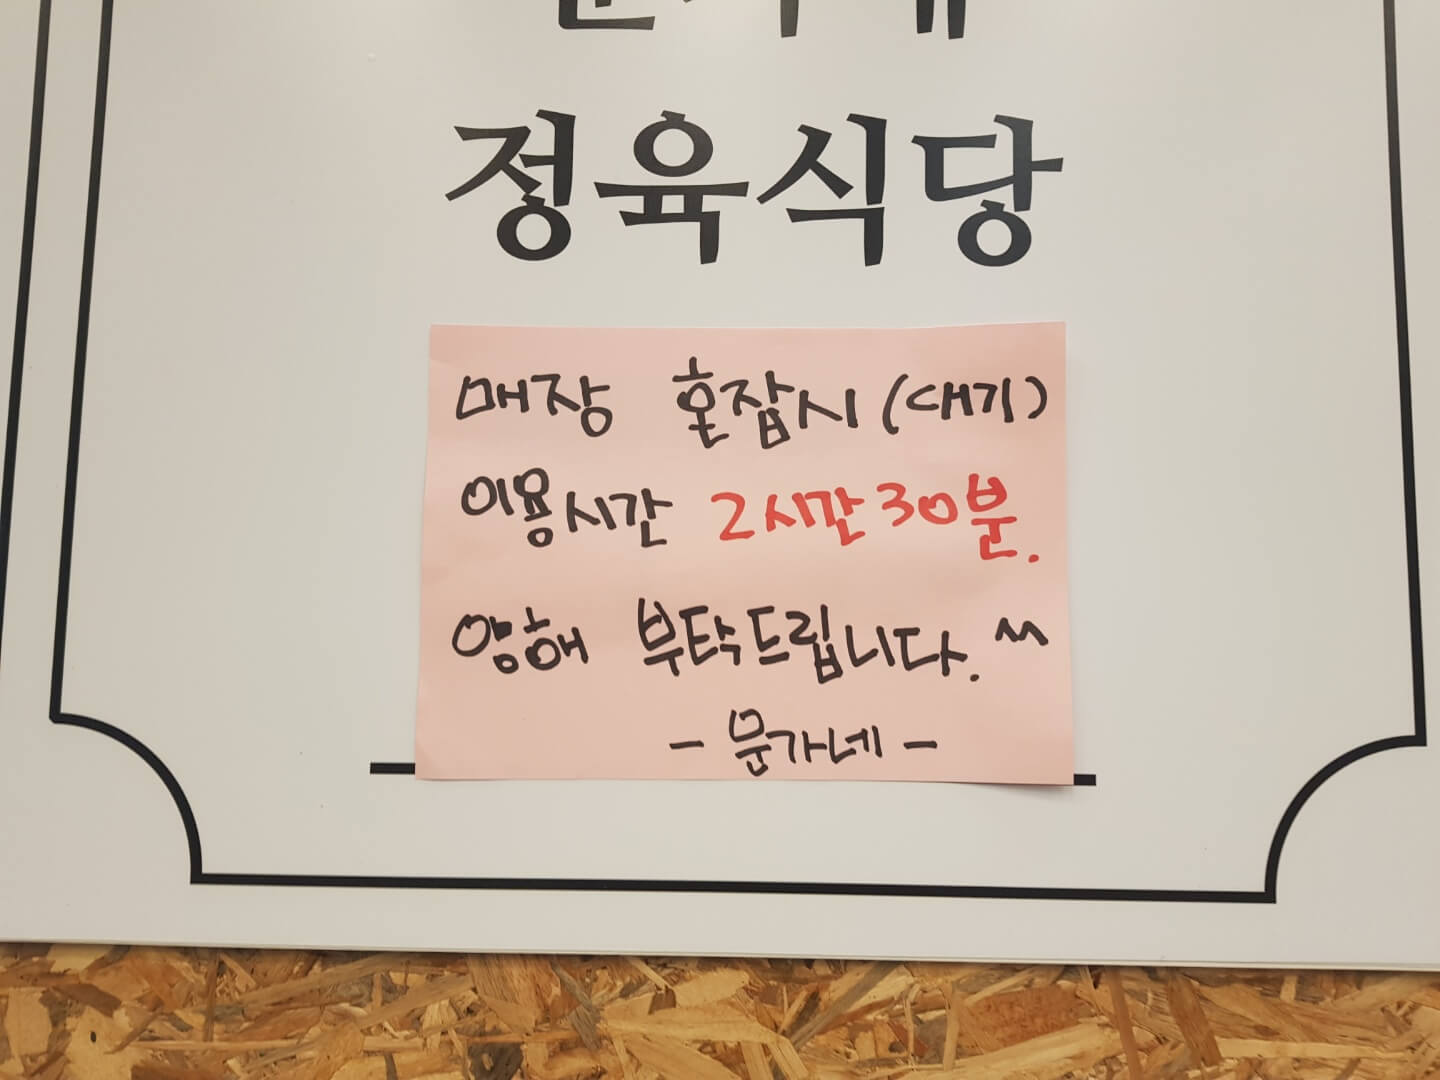 정육식당
매장 혼잡시 (대기)
이용시간 2시간 30분.
양해 부탁드립니다. ^^
- 문가네 -